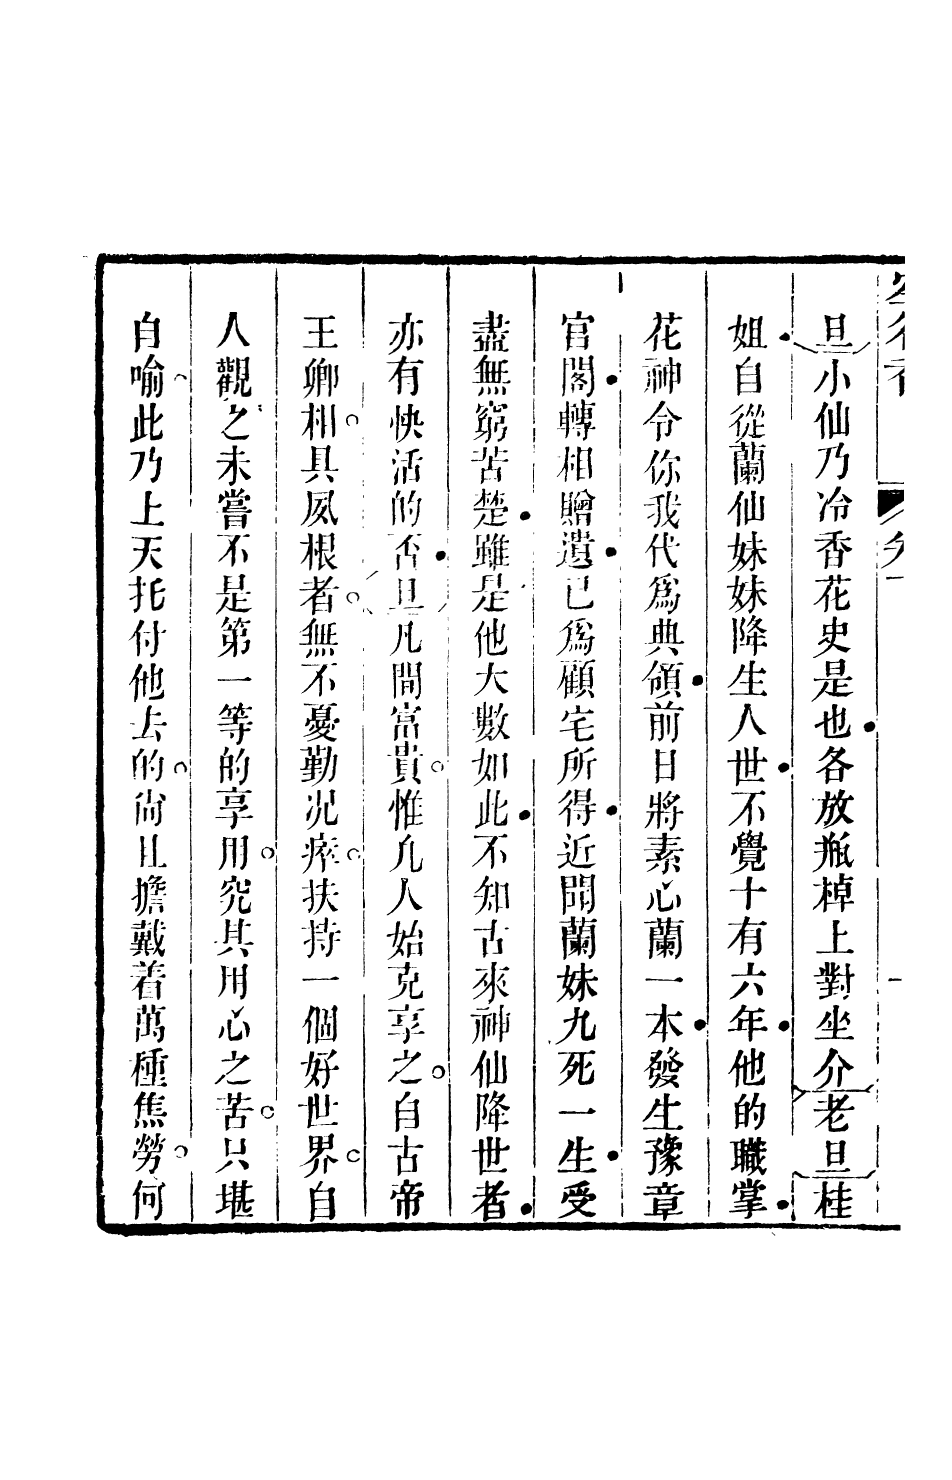 旦小仙乃冷香花史是也各放瓶棹上對坐介老旦桂
姐自從蘭仙妹妹降生人世不覺十有六年他的職掌
花神令你我代爲典領前日將素心蘭一本發生豫章
官閣轉相贈遺已爲顧宅所得近聞蘭妹九死一生受
盡無窮苦楚雖是他大數如此不知古來神仙降世者
亦有快活的否旦凡間富貴惟凢人始克享之自古帝
王卿相具夙根者無不憂勤况瘁扶持一個好世界自
人觀之未嘗不是第一等的享用究其用心之苦只堪
自喻此乃上天托付他去的尙且擔戴着萬種焦勞何